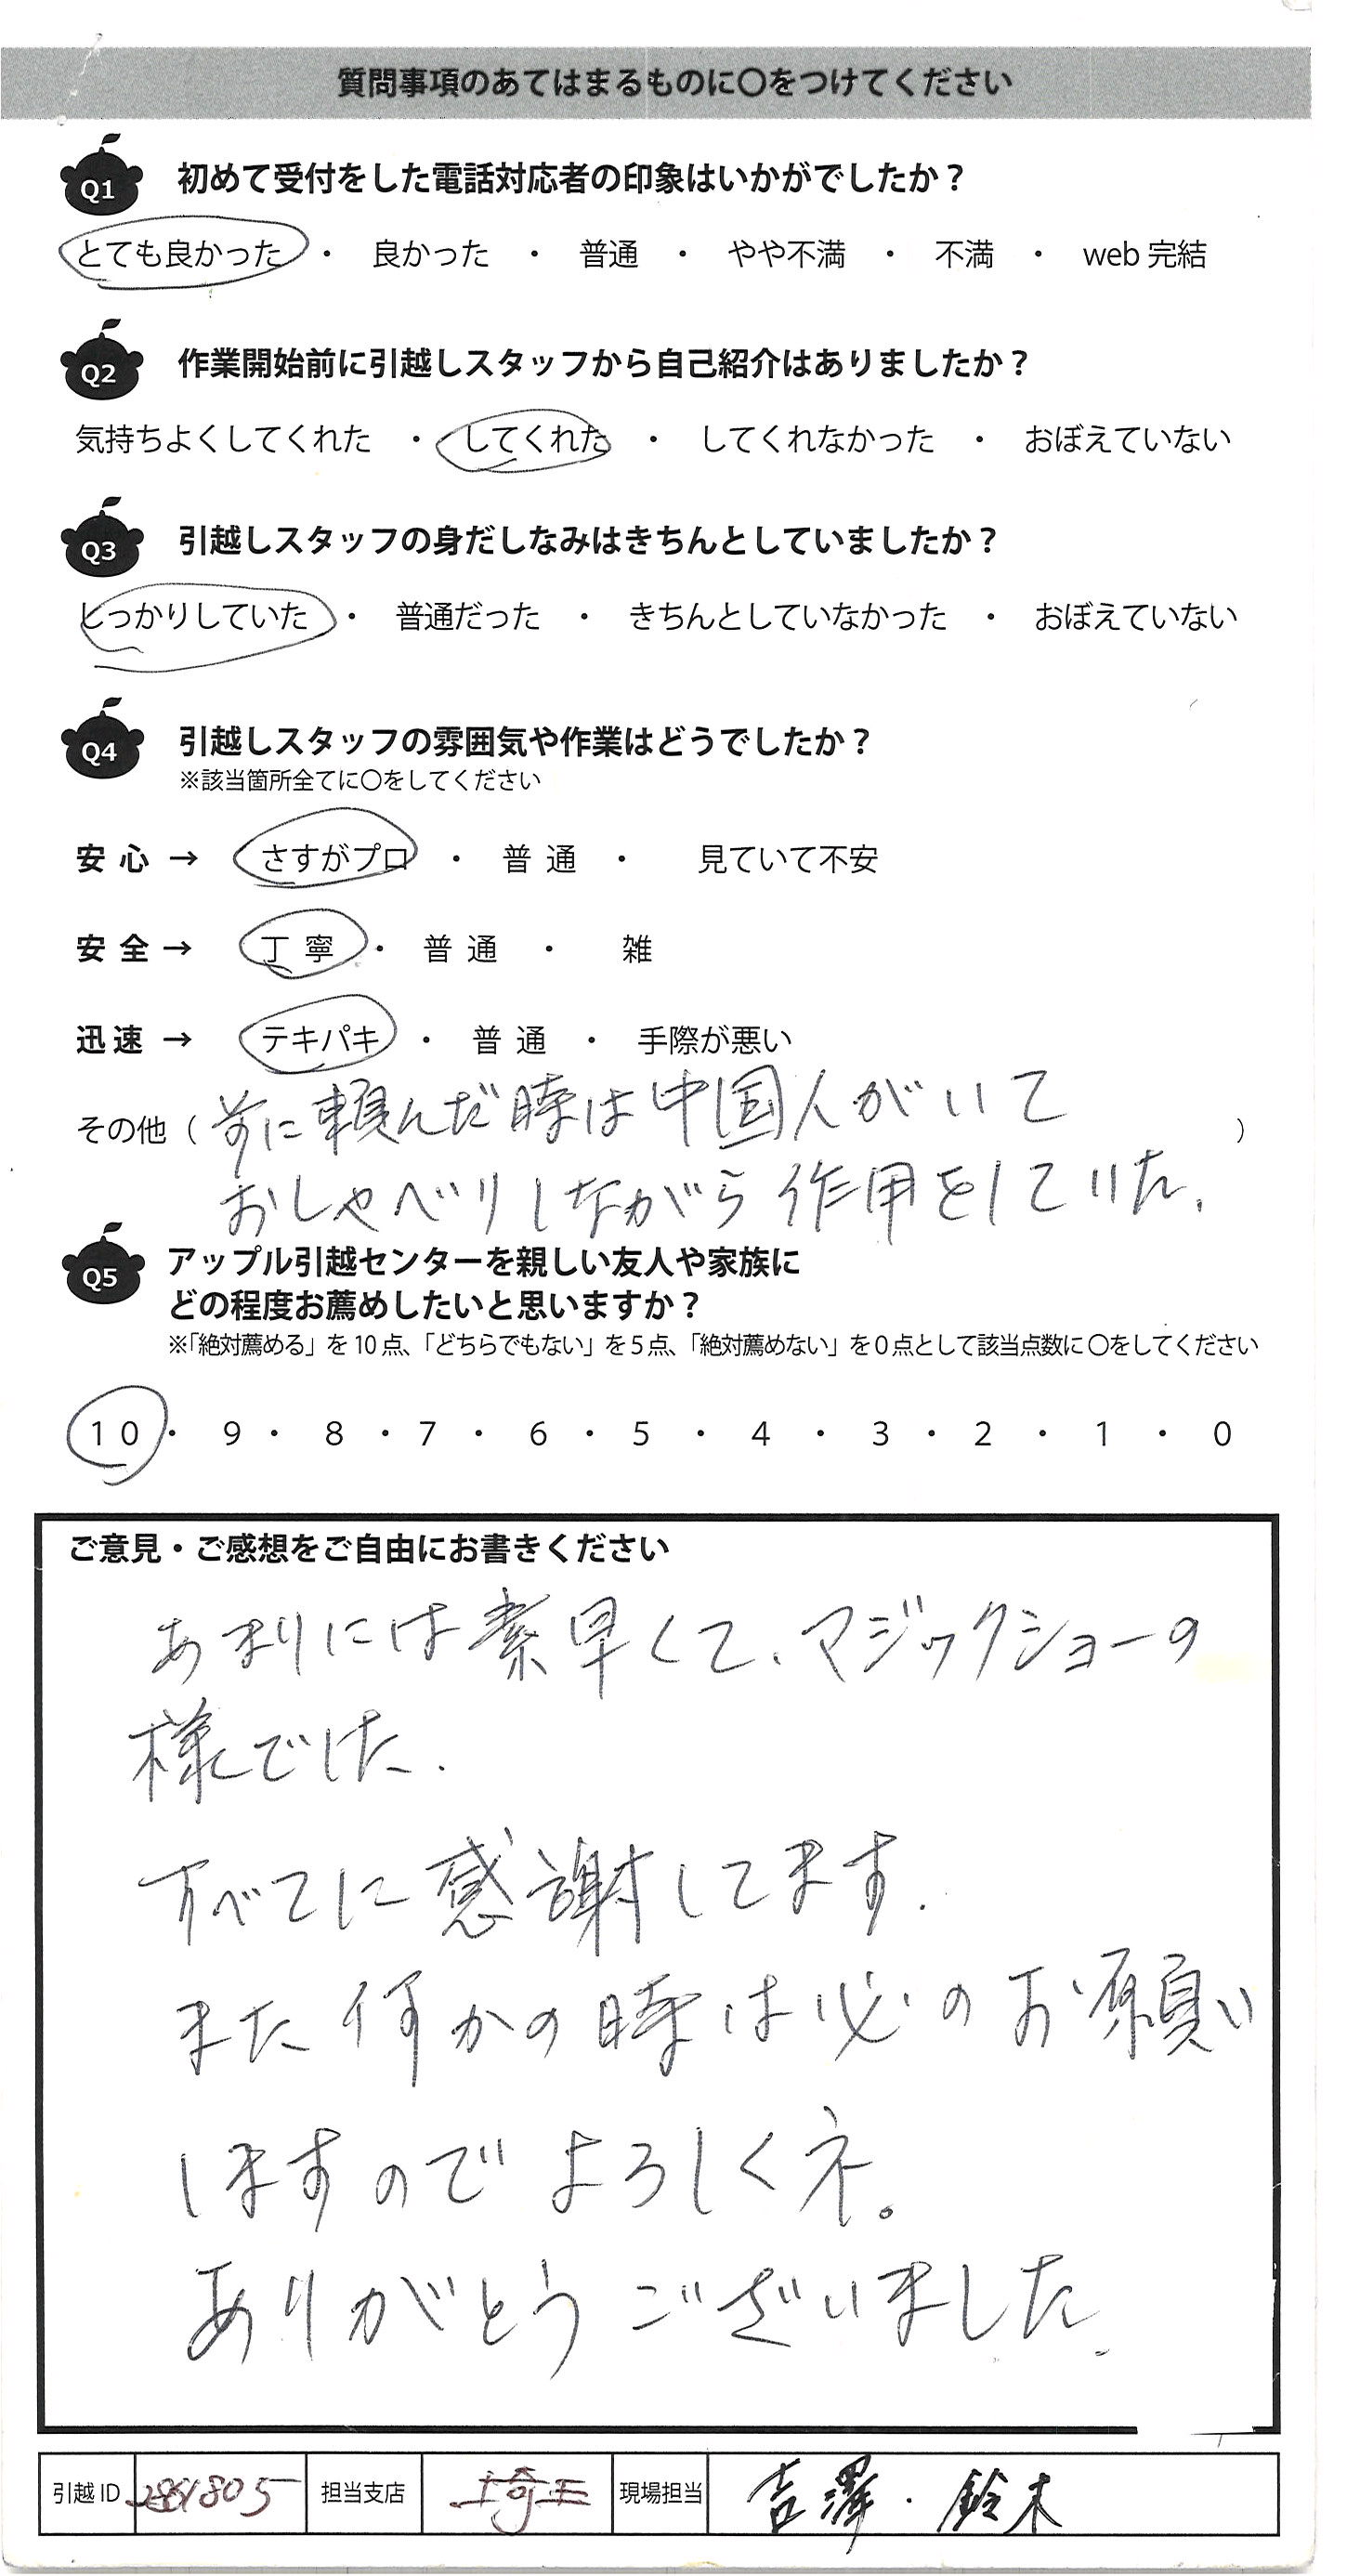 質問事項のあてはまるものに〇をつけてください
Q1 初めて受付をした電話対応者の印象はいかがでしたか？
とても良かった ・ 良かった ・ 普通 ・ やや不満 ・ 不満 ・ web 完結
Q2 作業開始前に引越しスタッフから自己紹介はありましたか？
気持ちよくしてくれた ・ してくれた ・ してくれなかった ・ おぼえていない
Q3 引越しスタッフの身だしなみはきちんとしていましたか？
しっかりしていた ・ 普通だった ・ きちんとしていなかった ・ おぼえていない
Q4 引越しスタッフの雰囲気や作業はどうでしたか？
※該当箇所全てに〇をしてください
安心 → さすがプロ ・ 普通 ・ 見ていて不安
安全 → 丁寧 ・ 普通 ・ 雑
迅速 → テキパキ ・ 普通 ・ 手際が悪い
その他（ 前に頼んだ時は中国人がいて ）
おしゃべりしながら作用をしていた.
Q5 アップル引越センターを親しい友人や家族に
どの程度お薦めしたいと思いますか？
※「絶対薦める」を10点、「どちらでもない」を5点、「絶対薦めない」を0点として該当点数に〇をしてください
10 ・ 9 ・ 8 ・ 7 ・ 6 ・ 5 ・ 4 ・ 3 ・ 2 ・ 1 ・ 0
ご意見・ご感想をご自由にお書きください
あまりには素早くて、マジックショーの
様でした.
すべてに感謝してます.
また何かの時は必のお願い
しますのでよろしくネ。
ありがとうございました.
引越ID 2861805 担当支店 埼玉 現場担当 吉澤・鈴木